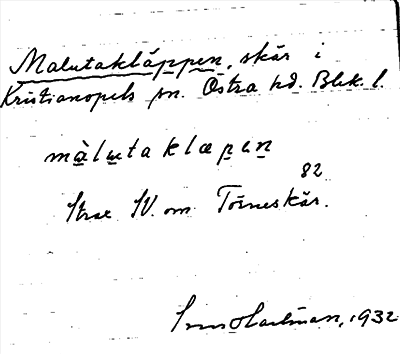 Malutakläppen, skär i
Kristianopels sn. Östra hd. Blek. l.
màlutaklæpen
82
Strax SV. om Törneskär.
Sven Hartman, 1932